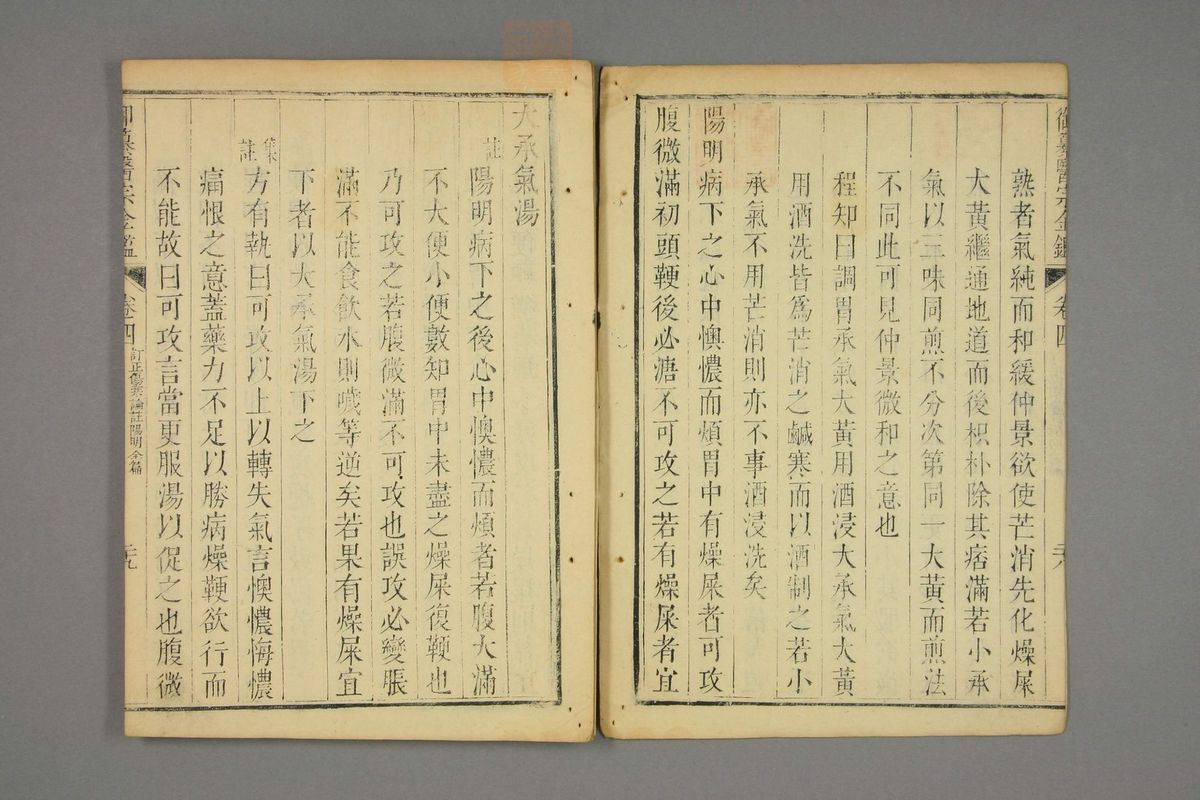 御纂醫宗金鑑 卷四 二十八
熟者氣純而和緩仲景欲使芒消先化燥屎
大黃繼通地道而後枳朴除其痞滿若小承
氣以三味同煎不分次第同一大黃而煎法
不同此可見仲景微和之意也
程知曰調胃承氣大黃用酒浸大承氣大黃
用酒洗皆爲芒消之鹹寒而以酒制之若小
承氣不用芒消則亦不事酒浸洗矣
陽明病下之心中懊憹而煩胃中有燥屎者可攻
腹微滿初頭鞕後必溏不可攻之若有燥屎者宜
大承氣湯
註陽明病下之後心中懊憹而煩者若腹大滿
不大便小便數知胃中未盡之燥屎復鞕也
乃可攻之若腹微滿不可攻也誤攻必變脹
滿不能食飲水則噦等逆矣若果有燥屎宜
下者以大承氣湯下之
集註方有執曰可攻以上以轉失氣言懊憹悔憹
痛恨之意蓋藥力不足以勝病燥鞕欲行而
不能故曰可攻言當更服湯以促之也腹微
御纂醫宗金鑑 卷四 訂正傷寒論註陽明全篇 二十九